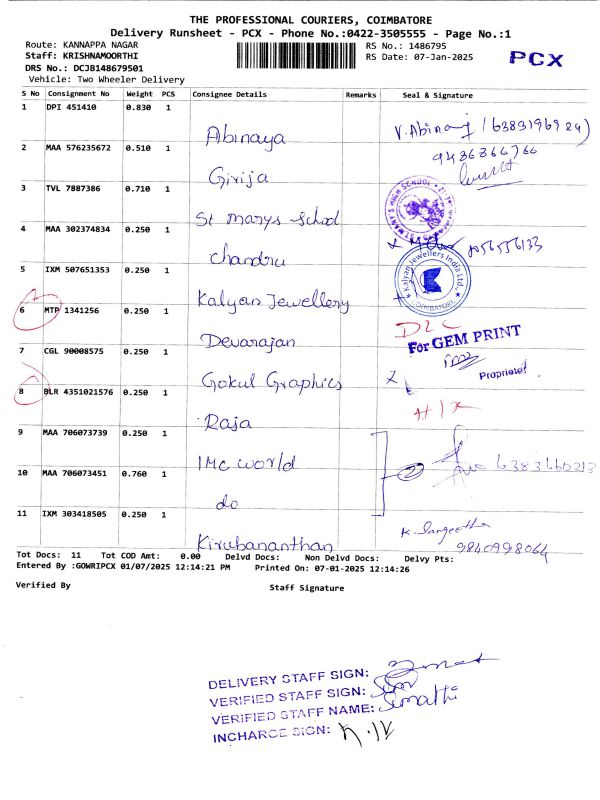 THE PROFESSIONAL COURIERS, COIMBATORE
Delivery Runsheet - PCX - Phone No.:0422-3505555 - Page No.:1
Route: KANNAPPA NAGAR
RS No.: 1486795
Staff: KRISHNAMOORTHI
RS Date: 07-Jan-2025
PCX
DRS No.: DCJB148679501
Vehicle: Two Wheeler Delivery
S No Consignment No Weight PCS Consignee Details Remarks Seal & Signature
1 DPI 451410 0.830 1 Abinaya
2 MAA 576235672 0.510 1 Girija
9486866766
3 TVL 7887386 0.710 1 St Marys School
4 MAA 302374834 0.250 1 Chandru
5 IXM 507651353 0.250 1 Kalyan Jewellery
Kalyan Jewellers India Ltd.
COIMBATORE
6 MTP 1341256 0.250 1 Devarajan
D2C
For GEM PRINT
Proprietor
7 CGL 90008575 0.250 1 Gokul Graphics
8 BLR 4351021576 0.250 1 Raja
9 MAA 706073739 0.250 1 IMC World
10 MAA 706073451 0.760 1 do
11 IXM 303418505 0.250 1 Kirubananthan
K. Sangeetha
9840998064
Tot Docs: 11 Tot COD Amt: 0.00 Delvd Docs: Non Delvd Docs: Delvy Pts:
Entered By :GOWRIPCX 01/07/2025 12:14:21 PM Printed On: 07-01-2025 12:14:26
Verified By Staff Signature
DELIVERY STAFF SIGN:
VERIFIED STAFF SIGN:
VERIFIED STAFF NAME: Sumathi
INCHARGE SIGN: